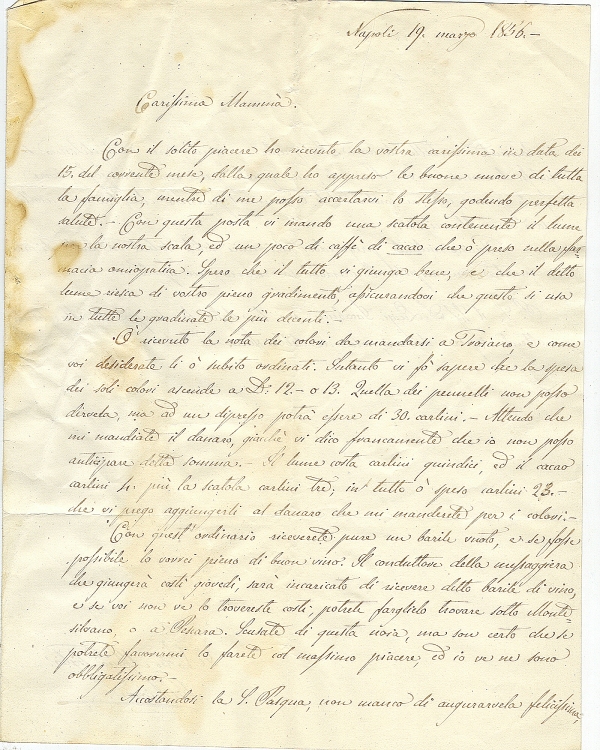 Napoli 19. marzo 1856.-
Carissima Mammà.
Con il solito piacere ho ricevuto la vostra carissima in data dei
15. del corrente mese, dalla quale ho appreso le buone nuove di tutta
la famiglia, mentre di me posso accertarvi lo stesso, godendo perfetta
salute.- Con questa posta vi mando una scatola contenente il lume
per la nostra scala, ed un poco di caffè di cacao che ò preso nella far=
macia omiopatica. Spero che il tutto vi giunga bene, e che il detto
lume riesca di vostro pieno gradimento, assicurandovi che questo si usa
in tutte le gradinate le più decenti.-
Ò ricevuto la nota dei colori da mandarsi a Troiano e come
voi desiderate li ò subito ordinati. Intanto vi fò sapere che la spesa
dei soli colori ascende a D: 12.- o 13. Quella dei pennelli non posso
dirvela, ma ad un dipresso potrà essere di 30. carlini.- Attendo che
mi mandiate il danaro, giacchè vi dico francamente che io non posso
anticipare detta somma.- Il lume costa carlini quindici, ed il cacao
carlini più la scatola carlini tre; in tutto ò speso carlini 23.-
che vi prego aggiungerli al danaro che mi manderete per i colori.-
Con quest'ordinario riceverete pure un barile vuoto, e se fosse
possibile lo vorrei pieno di buon vino. Il conduttore della messaggiera
che giungerà costì giovedì, sarà incaricato di ricevere detto barile di vino,
e se voi non ve lo trovereste costì, potrete farglielo trovare sotto Monte=
silvano, o a Pescara. Scusate di questa noia, ma son certo che se
potrete favorirmi lo farete col massimo piacere, ed io ve ne sono
obbligatissimo.-
Accostandosi la S. Pasqua, non manco di augurarvela felicissima,